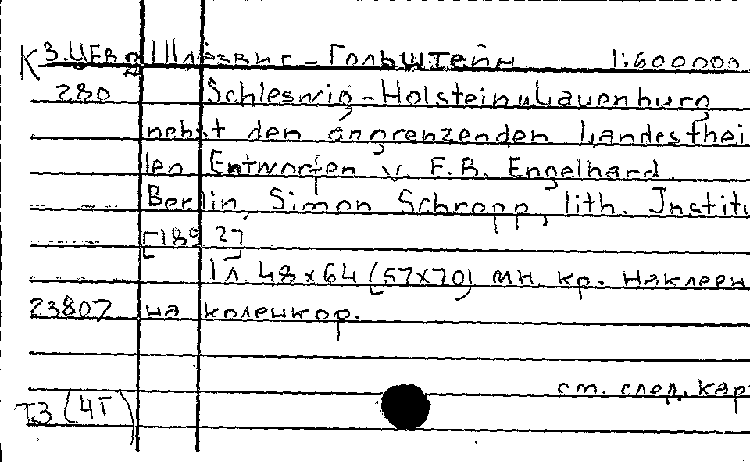 К 3.ЦЕВД Шлезвиг-Гольштейн 1:600000
280 Schleswig-Holstein u Lauenburg
nebst den angrenzenden Landesthei
len Entworfen v. F.B. Engelhard
Berlin, Simon Schropp, lith. Institu
1 л. 48х64 (57х70) мн. кр. наклеен
23807 на коленкор.
см. след. кар
Т.3 (4Г)